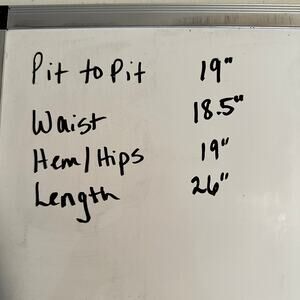 Pit to Pit 19"
Waist 18.5"
Hem/Hips 19"
Length 26"